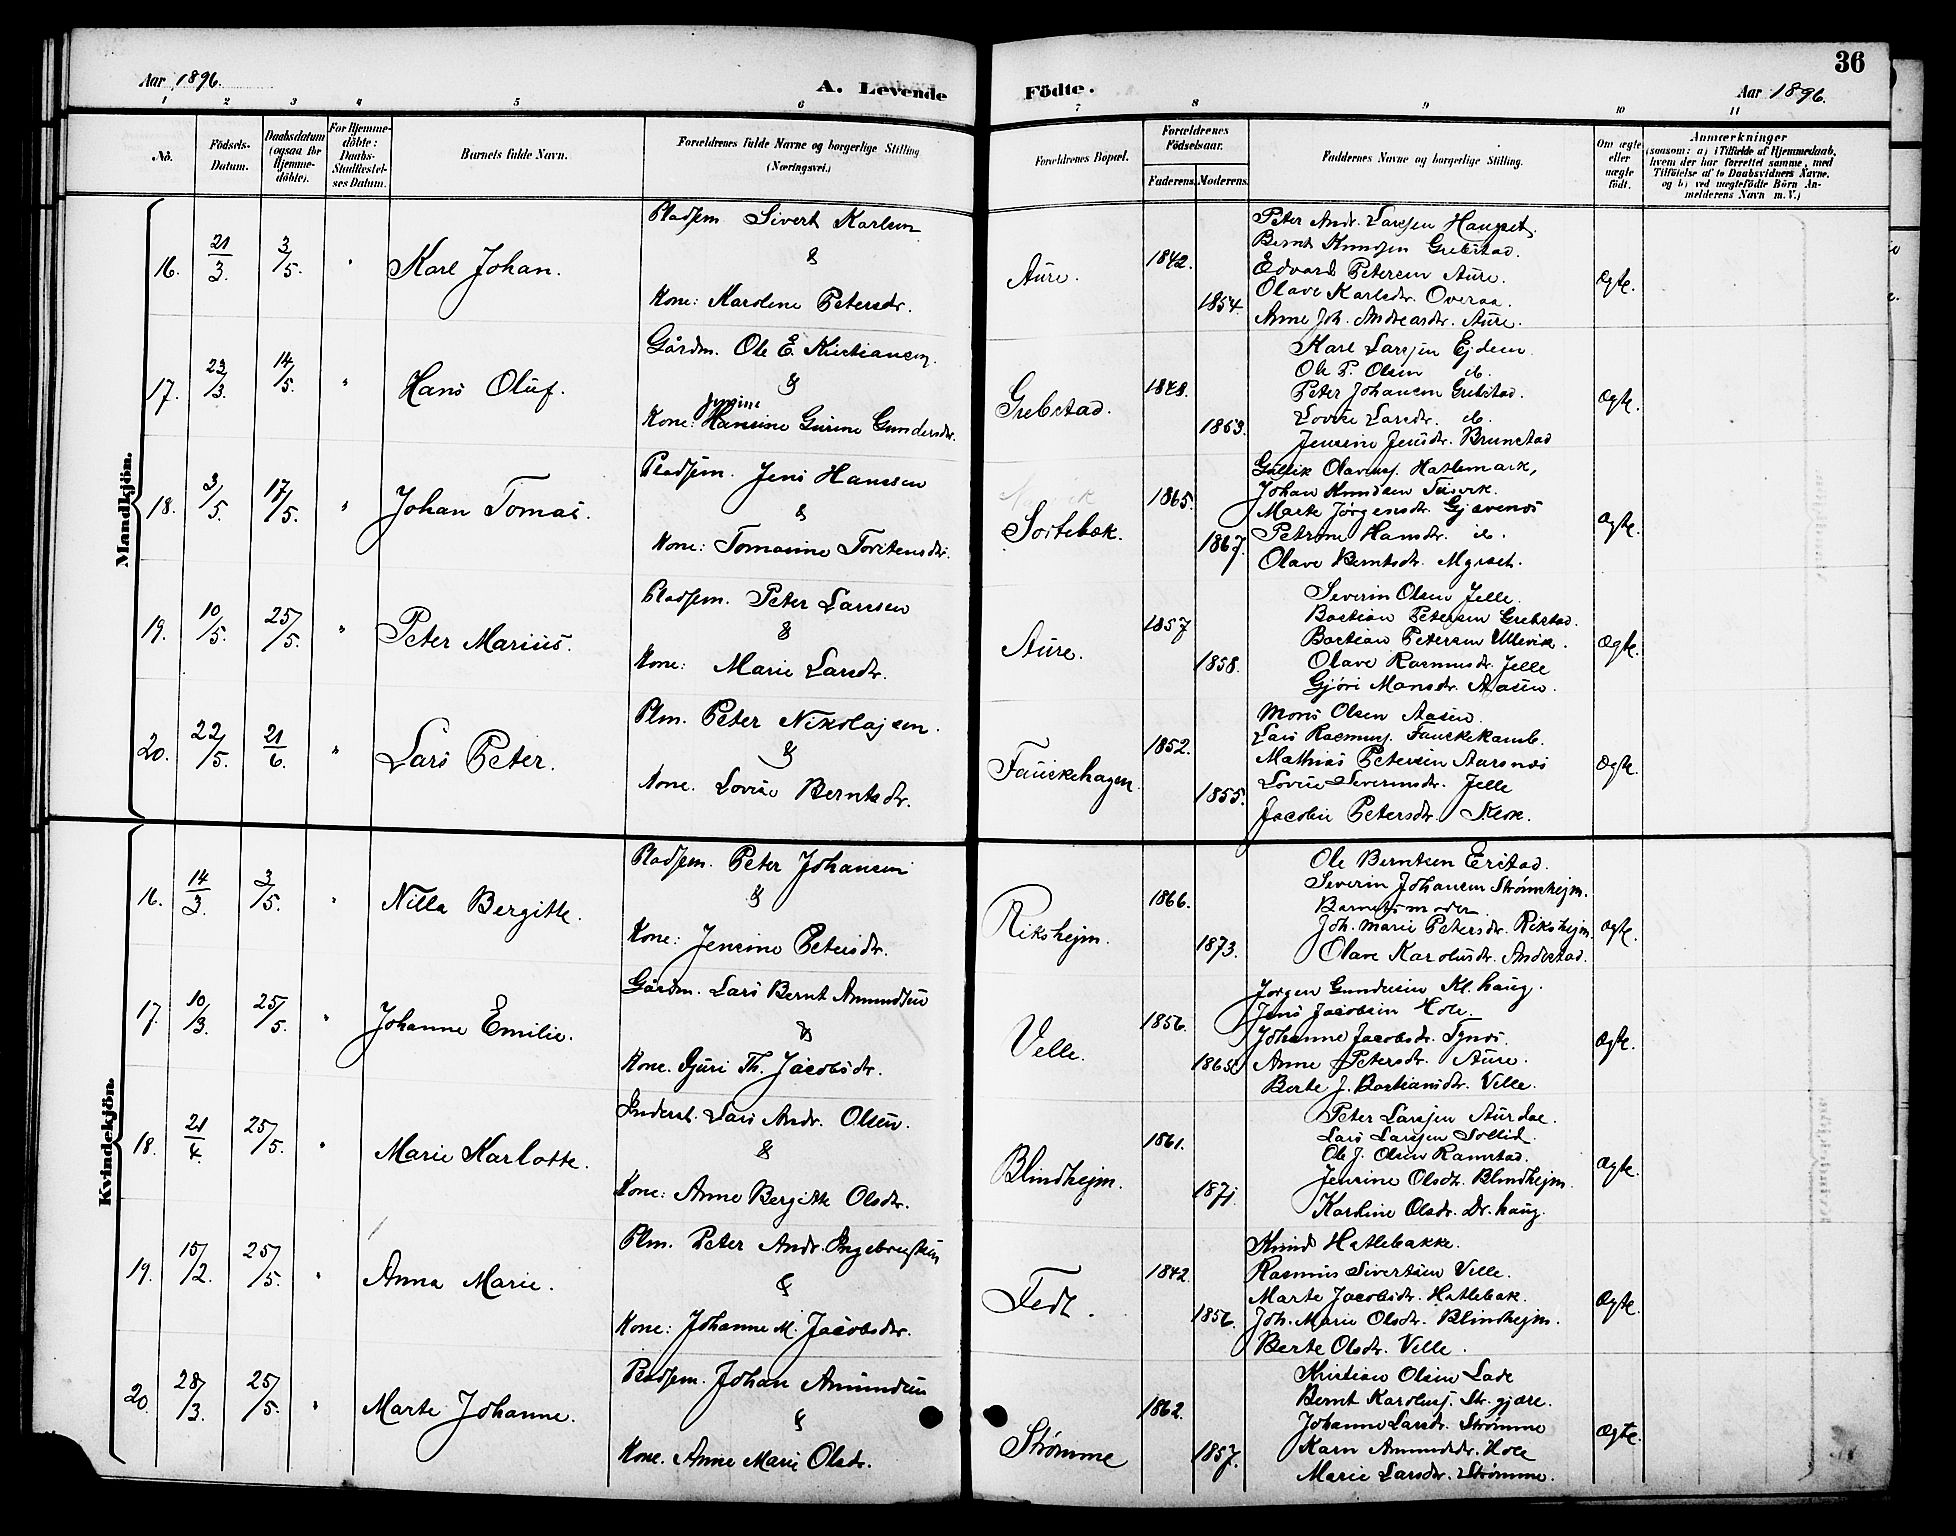 36
Aar 1896.
A. Levende
Födte.
Aar 1896.
1 2 3 4 5 6 7 8 9 10 11
No.
Födsels-Datum.
Daabsdatum (ogsaa för Hjemme-döbte).
For Hjemme-döbte: Daabs-Stadfæstel-ses Datum.
Barnets fulde Navn.
Forældrenes fulde Navne og borgerlige Stilling (Næringsvei.)
Forældrenes Bopæl.
Forældrenes Födselsaar.
Faderens.
Moderens.
Faddernes Navne og borgerlige Stilling.
Om ægte eller uægte födt.
Anmærkninger
(saasom: a) i Tilfælde af Hjemmedaab,
hvem der har forrettet samme, med
Tilföielse af to Daabsvidners Navne.
og b) ved uægtefödte Börn An-
melderens Navn m. V.)
Mandkjön.
16. 21/3 3/5. " Karl Johan.
Pladsm Sivert Karlsen
&
Kone: Karoline Petersdr.
Aure. 1842. 1854.
Peter Andr. Larssen Haugset.
Bernt Knudsen Grebstad.
Edvard Petersen Aure.
Olave Karlsdr. Overaa.
Anne Joh. Andreasdr. Aure.
Ægte.
17. 23/3. 14/5. " Hans Oluf.
Gårdm. Ole E. Kristiansen.
&
Jensine
Kone: Hansine Gurine Gundersdr.
Grebstad. 1848. 1863.
Karl Larssen Ejdem.
Ole P. Olsen do.
Peter Johansen Grebstad.
Lovise Larsdr. do.
Jensine Jensdr. Brunstad
Ægte.
18. 3/5. 17/5. " Johan Tomas.
Pladsm. Jens Hanssen
&
Kone: Tomasine Torstensdr.
Sortebæk. 1865. 1867.
Gullik Olavusj. Hatlemark,
Johan Knudsen Tusvik.
Marte Jørgensdr. Gjævenes
Petrine Hansdr. do.
Olave Berntsdr. Myrset.
Ægte.
19. 10/5. 25/5. " Peter Marius.
Pladsm. Peter Larssen
&
Kone: Marie Larsdr.
Aure. 1857 1858.
Severin Olsen Jelle.
Bastian Petersen Grebstad.
Bastian Petersen Ullevik.
Olave Rasmusdr. Jelle
Gjøri Monsdr. Aasen.
Ægte.
20. 22/5. 21/6. " Lars Peter.
Plm. Peter Nikolajsen.
&
Kone. Lovise Berntsdr.
Fauskehagen. 1852. 1855.
Mons Olsen Aasen.
Lars Rasmusj. Fauskekamb.
Mathias Petersen Aarsnes
Lovise Severinsdr. Jelle
Jacobin Petersdr. Klok.
Ægte.
Kvindekjön.
16. 14/3. 3/5. " Nilla Bergitte.
Pladsm. Peter Johansen
&
Kone: Jensine Petersdr.
Rikshejm. 1866. 1873.
Ole Berntsen Erstad.
Severin Johansen Strømshejm.
Barnets moder.
Joh. Marie Petersdr. Rikshejm.
Olave Karolusdr. Andestad.
Ægte.
17. 10/3. 25/5. " Johanne Emilie.
Gårdm. Lars Bernt Amundsen
&
Kone. Gjuri Th. Jacobsdr.
Velle. 1856. 1865.
Jørgen Gundersen Kl. haug.
Jens Jacobsen Hole.
Johanne Jacobsdr. Tynes.
Anne Petersdr. Aure.
Berte J. Bastiansdr. Velle.
Ægte.
18. 21/4. 25/5. " Marie Karlotte.
Inderst. Lars Andr. Olsen.
&
Kone: Anne Bergitte Olsdr.
Blindhejm. 1861. 1871.
Peter Larssen Aurdal
Lars Larssen Sollid.
Ole J. Olsen Ramstad.
Jensine Olsdr. Blindhejm.
Karoline Olsdr. Dr. haug.
Ægte.
19. 15/2. 25/5. " Anna Marie.
Plm. Peter Andr. Ingebrigtsen
&
Kone: Johanne M. Jacobsdr.
Fedt. 1842. 1856.
Knud Hatlebakke.
Rasmus Sivertsen Velle.
Marte Jacobsdr. Hatlebak.
Joh. Marie Olsdr. Blindhejm.
Berte Olsdr. Velle.
Ægte.
20. 28/3. 25/5. " Marte Johanne.
Pladsm. Johan Amundsen
&
Kone. Anne Marie Olsdr.
Strømme 1862. 1857.
Kristian Olsen Lade
Bernt Karolusj. Str. gjære.
Johanne Larsdr. Strømme
Karn Amundsdr. Hole
Marie Larsdr. Strømme.
Ægte.